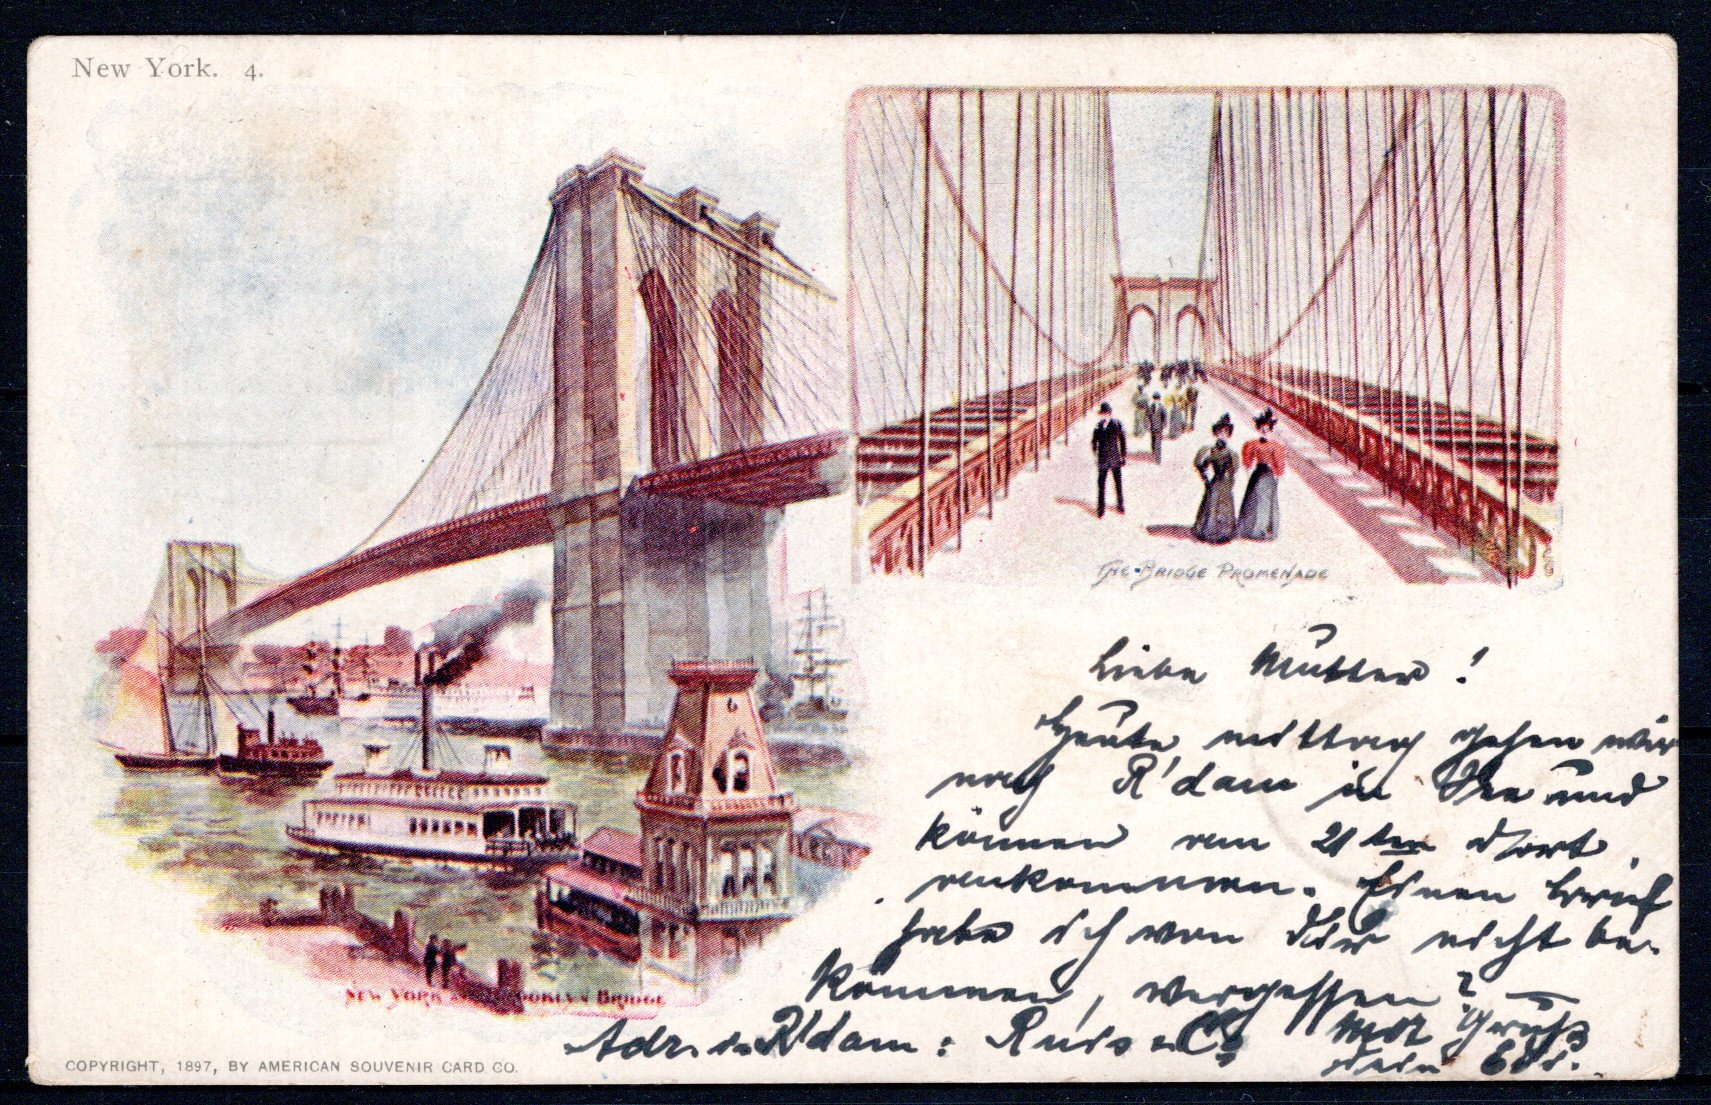 New York. 4.
THE BRIDGE PROMENADE
NEW YORK AND BROOKLYN BRIDGE
Liebe Mutter!
Heute mittag gehen wir
nach R'dam in See und
können am 21ten dort
ankommen. Einen Brief
habe ich von Dir nicht be-
kommen, vergessen? —
Adr. in R'dam: Ruis & Co
Mit Gruß
dein
COPYRIGHT, 1897, BY AMERICAN SOUVENIR CARD CO.